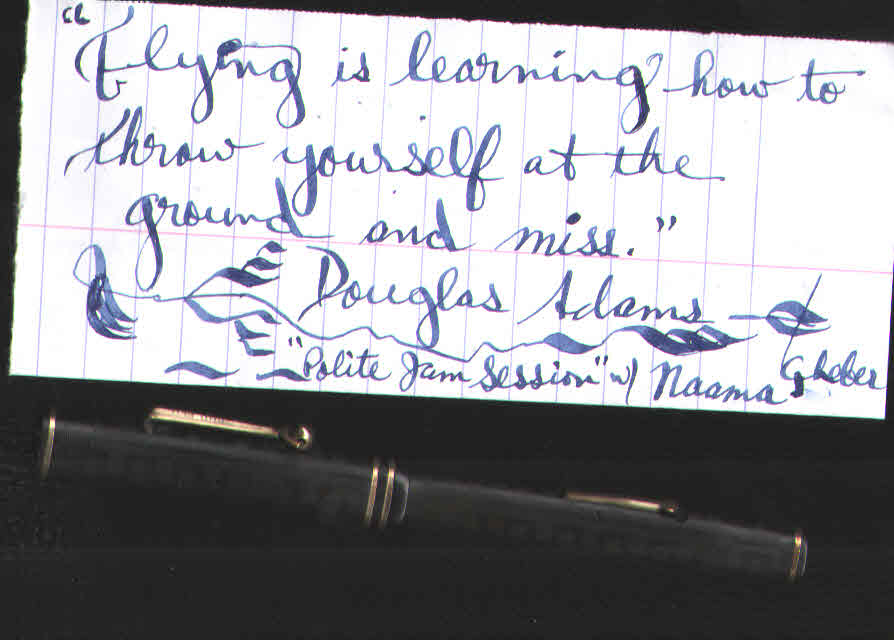 "Flying is learning how to
throw yourself at the
ground and miss."
Douglas Adams
"Polite Jam Session" w/ Naama Gheber